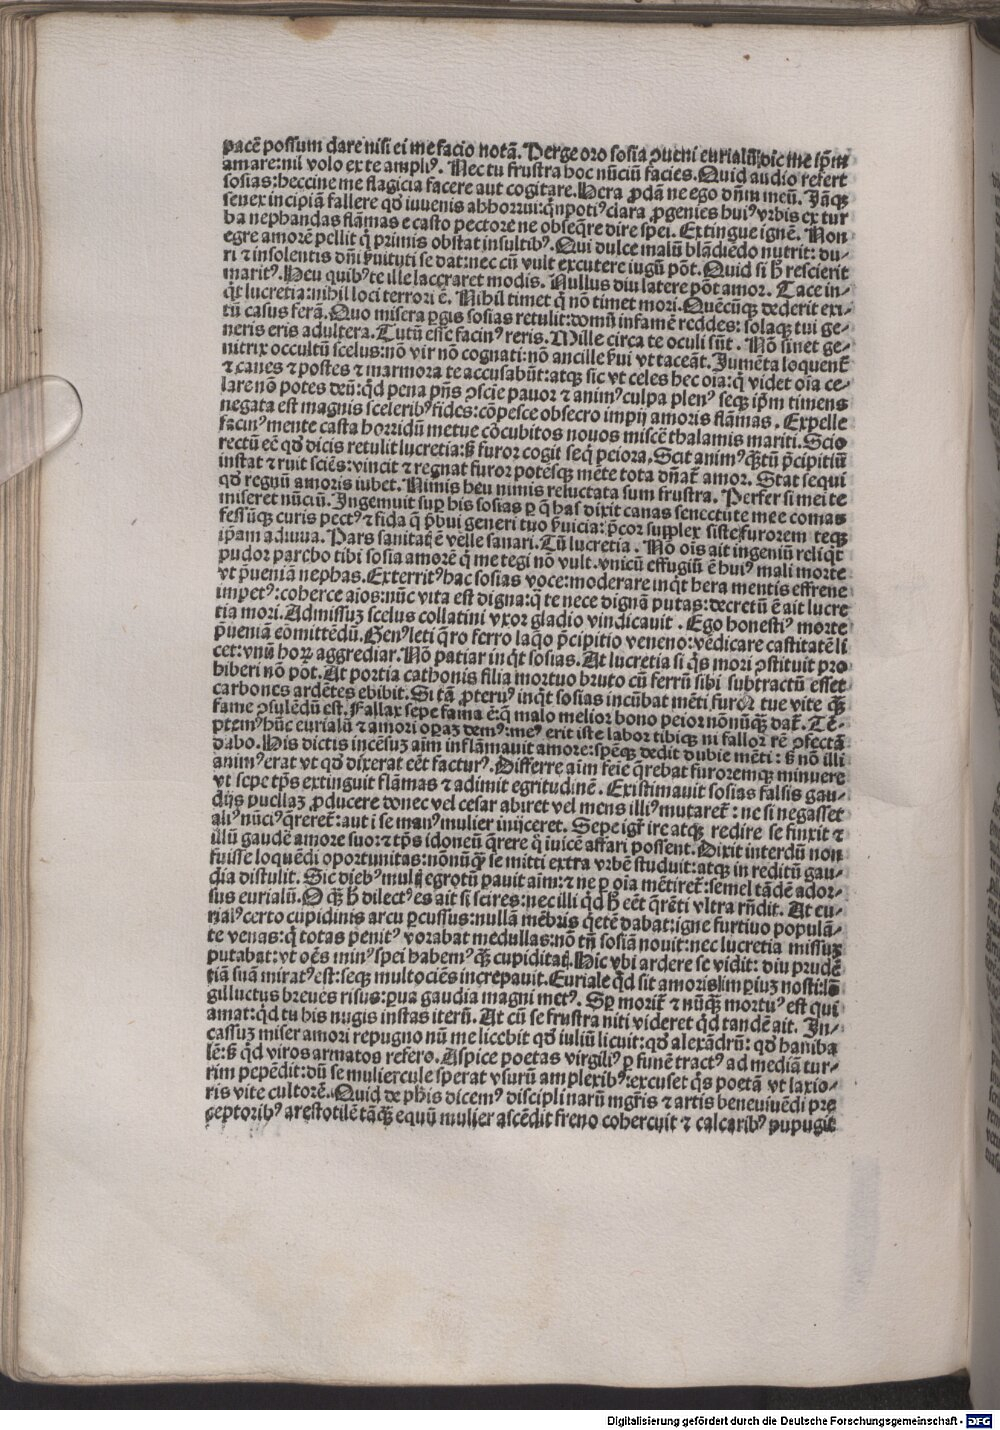 pacē possum dare nisi ei me facio notā. Perge oro sosia ꝯueni eurialū: dic me ip̄m
amare: nil volo ex te ampliꝰ. Nec tu frustra hoc nūciū facies. Quid audio refert
sosias: heccine me flagicia facere aut cogitare. Hera ꝓdā ne ego dn̄m meū. Iāqꝫ
senex incipiā fallere qd̓ iuuenis abhorrui: qͥn potiꝰ clara ꝓgenies huiꝰ vrbis extur
ba nephandas flāmas e casto pectore ne obseq̄re dire spei. Extingue ignē. Non
egre amorē pellit qͥ primis obstat insultibꝰ. Qui dulce malū blādiēdo nutrit: du⸗
ri ⁊ insolentis dn̄i ẜuituti se dat: nec cū vult excutere iugū pōt. Quid si hͦ rescierit
maritꝰ. Heu quibꝰ te ille laceraret modis. Nullus diu latere pōt amor. Tace in⸗
qͥt lucretia: nihil loci terrori ē. Nihil timet qͥ nō timet mori. Quēcūqꝫ dederit exi⸗
tū casus ferā. Quo misera ꝑgis sosias retulit: domū infamē reddes: solaqꝫ tui ge⸗
neris eris adultera. Tutū esse facinꝰ reris. Mille circa te oculi sūt. Nō sinet ge⸗
nitrix occultū scelus: nō vir nō cognati: nō ancille ẜui vt taceāt. Iumēta loquent̄
⁊ canes ⁊ postes ⁊ marmora te accusabūt: atqꝫ sic vt celes hec oīa: qͥ videt oīa ce⸗
lare nō potes deū: qd̓ pena pn̄s ꝯscīe pauor ⁊ animꝰ culpa plenꝰ seqꝫ ip̄m timens
negata est magnis sceleribꝰ fides: cōpesce obsecro impij amoris flāmas. Expelle
facinꝰ mente casta horridū metue cōcubitos nouos miscē thalamis mariti. Scio
rectū eē qd̓ dicis retulit lucretia: ẜ furor cogit seqͥ peiora. Scit animꝰ qͣꝫtū p̄cipitiū
instat ⁊ ruit sciēs: vincit ⁊ regnat furor potēsqꝫ mēte tota dn̄at̄ amor. Stat sequi
qd̓ regnū amoris iubet. Nimis heu nimis reluctata sum frustra. Perfer si mei te
miseret nūciū. Ingemuit suꝑ his sosias ꝑ qͣ has dixit canas senectute mee comas
fessūqꝫ curis pectꝰ ⁊ fida qͣ p̄bui generi tuo ẜuicia: p̄cor supplex siste furorem teqꝫ
ip̄am adiuua. Pars sanitatꝭ ē velle sanari. Tū lucretia. Nō oīs ait ingeniū reliqͥt
pudor parebo tibi sosia amorē qͥ me tegi nō vult. vnicū effugiū ē huiꝰ mali morte
vt p̄ueniā nephas. Exterritꝰ hac sosias voce: moderare inqͥt hera mentis effrene
impetꝰ: coherce aīos: nūc vita est digna: qͣ te nece dignā putas: decretū ē ait lucre
tia mori. Admissuꝫ scelus collatini vxor gladio vindicauit. Ego honestiꝰ morte
p̄ueniā cōmittēdū. Genꝰ leti qͥro ferro laqͦo p̄cipitio veneno: vēdicare castitatē li
cet: vnū hoꝝ aggrediar. Nō patiar inqͥt sosias. At lucretia si qͥs mori ꝯstituit pro
hiberi nō pōt. At portia cathonis filia mortuo bruto cū ferrū sibi subtractū esset
carbones ardētes ebibit. Si tā ꝓteruꝰ inqͥt sosias incūbat mēti furor tue vite qͣꝫ
fame ꝯsulēdū est. Fallax sepe fama ē: qͣ malo melior bono peior nōnūqꝫ dat̄. Tē⸗
ptemꝰ hūc eurialū ⁊ amori oꝑaꝫ demꝰ: meꝰ erit iste labor tibiqꝫ ni fallor rē ꝯfectā
dabo. His dictis incēsuꝫ aīm inflāmauit amore: spēqꝫ dedit dubie mēti: ẜ nō illi
animꝰ erat vt qd̓ dixerat eēt facturꝰ. Differre aīm feīe qͥrebat furoremqꝫ minuere
vt sepe tp̄s extinguit flāmas ⁊ adimit egritudinē. Existimauit sosias falsis gau⸗
dijs puellaꝫ ꝓducere donec vel cesar abiret vel mens illiꝰ mutaret̄: ne si negasset
aliꝰ nūciꝰ qͥreret̄: aut ī se manꝰ mulier inijceret. Sepe igr̄ ire atqꝫ redire se finxit ⁊
illū gaudē amore suoꝝ ⁊ tp̄s idoneū qͥrere qͦ īuicē affari possent. Dixit interdū non
fuisse loquēdi oportunitas: nōnūqͣꝫ se mitti extra vrbē studuit: atqꝫ in reditū gau⸗
dia distulit. Sic diebꝰ multꝭ egrotū pauit aīm: ⁊ ne ꝑ oīa mētiret̄: semel tādē ador⸗
sus eurialū. O qͣꝫ hͦ dilectꝰ es ait si scires: nec illi qd̓ hͦ eēt qͥrēti vltra rn̄dit. At eu⸗
rialꝰ certo cupidinis arcu ꝑcussus: nullā mēbris qͥetē dabat: igne furtiuo populā⸗
te venas: qͥ totas penitꝰ vorabat medullas: nō tn̄ sosiā nouit: nec lucretia missuꝫ
putabat: vt oēs minꝰ spei habemꝰ qͣꝫ cupiditatꝭ. Hic vbi ardere se vidit: diu prudē
tiā suā miratꝰ est: seqꝫ multociēs increpauit. Euriale qd̓ sit amoris imꝑiuꝫ nosti: lō
gi luctus breues risus: ꝑua gaudia magni metꝰ. Sꝑ morit̄ ⁊ nūqꝫ mortuꝰ est qui
amat: qd̓ tu his nugis instas iterū. At cū se frustra niti videret qd̓ tandē ait. In⸗
cassuꝫ miser amori repugno nū me licebit qd̓ iuliū licuit: qd̓ alexādrū: qd̓ haniba
lē: ẜ qd̓ viros armatos refero. Aspice poetas virgiliꝰ ꝑ funē tractꝰ ad mediā tur⸗
rim pepēdit: dū se muliercule sperat vsurū amplexibꝰ: excuset qͥs poetā vt laxio⸗
ris vite cultorē. Quid de ph̄is dicemꝰ disciplinarū mgr̄is ⁊ artis beneviuēdi pre
ceptoribꝰ arestotilē tāqͣꝫ equū mulier ascēdit freno cohercuit ⁊ calcaribꝰ pupugit
Digitalisierung gefördert durch die Deutsche Forschungsgemeinschaft - DFG